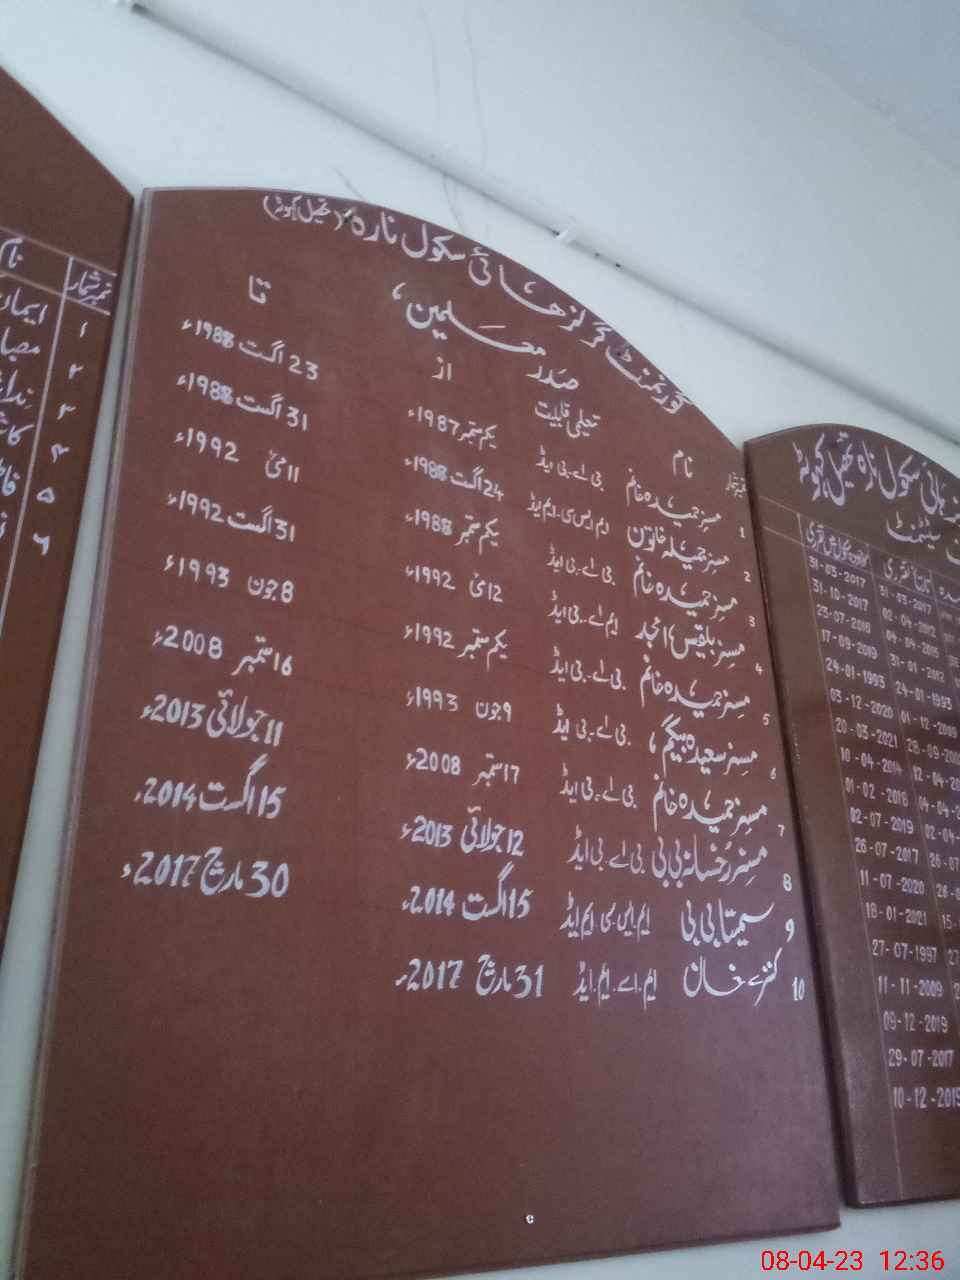 گورنمنٹ گرلز ھائی سکول نارہ (تحصیل کہوٹہ)
صدر معلمین
نمبر شمار نام تعلیمی قابلیت از تا
1 مسز حمیدہ خانم بی۔اے۔بی ایڈ یکم ستمبر 1987ء 23 اگست 1988ء
2 مسز جمیلہ خاتون ایم ایس سی۔ایم ایڈ 24 اگست 1988ء 31 اگست 1988ء
3 مسز حمیدہ خانم بی۔اے۔بی ایڈ یکم ستمبر 1988ء 11 مئی 1992ء
4 مسز بلقیس امجد ایم۔اے۔بی ایڈ 12 مئی 1992ء 31 اگست 1992ء
5 مسز حمیدہ خانم بی۔اے۔بی ایڈ یکم ستمبر 1992ء 8 جون 1993ء
6 مسز سعیدہ بیگم بی۔اے۔بی ایڈ 9 جون 1993ء 16 ستمبر 2008ء
7 مسز حمیدہ خانم بی۔اے۔بی ایڈ 17 ستمبر 2008ء 11 جولائی 2013ء
8 مسز رخسانہ بی بی بی۔اے۔بی ایڈ 12 جولائی 2013ء 15 اگست 2014ء
9 بی بی ایم ایس سی ایم ایڈ 15 اگست 2014ء 30 مارچ 2017ء
10 خان ایم۔اے۔ایم ایڈ 31 مارچ 2017ء
نمبر شمار
۱
۲
۳
۴
۵
۶
ہائی سکول نارہ تحصیل کہوٹہ
31-03-2017 31-03-2017
31-10-2017 02-04-2012
25-07-2018 04-04-2015
17-09-2019 31-01-2012
24-01-1993 24-01-1993
03-12-2020 01-12-2009
20-03-2021
10-04-2014
01-02-2018
02-07-2019
26-07-2017
11-07-2020
18-01-2021
27-07-1997
11-11-2009
09-12-2019
29-07-2017
10-12-2019
08-04-23 12:36